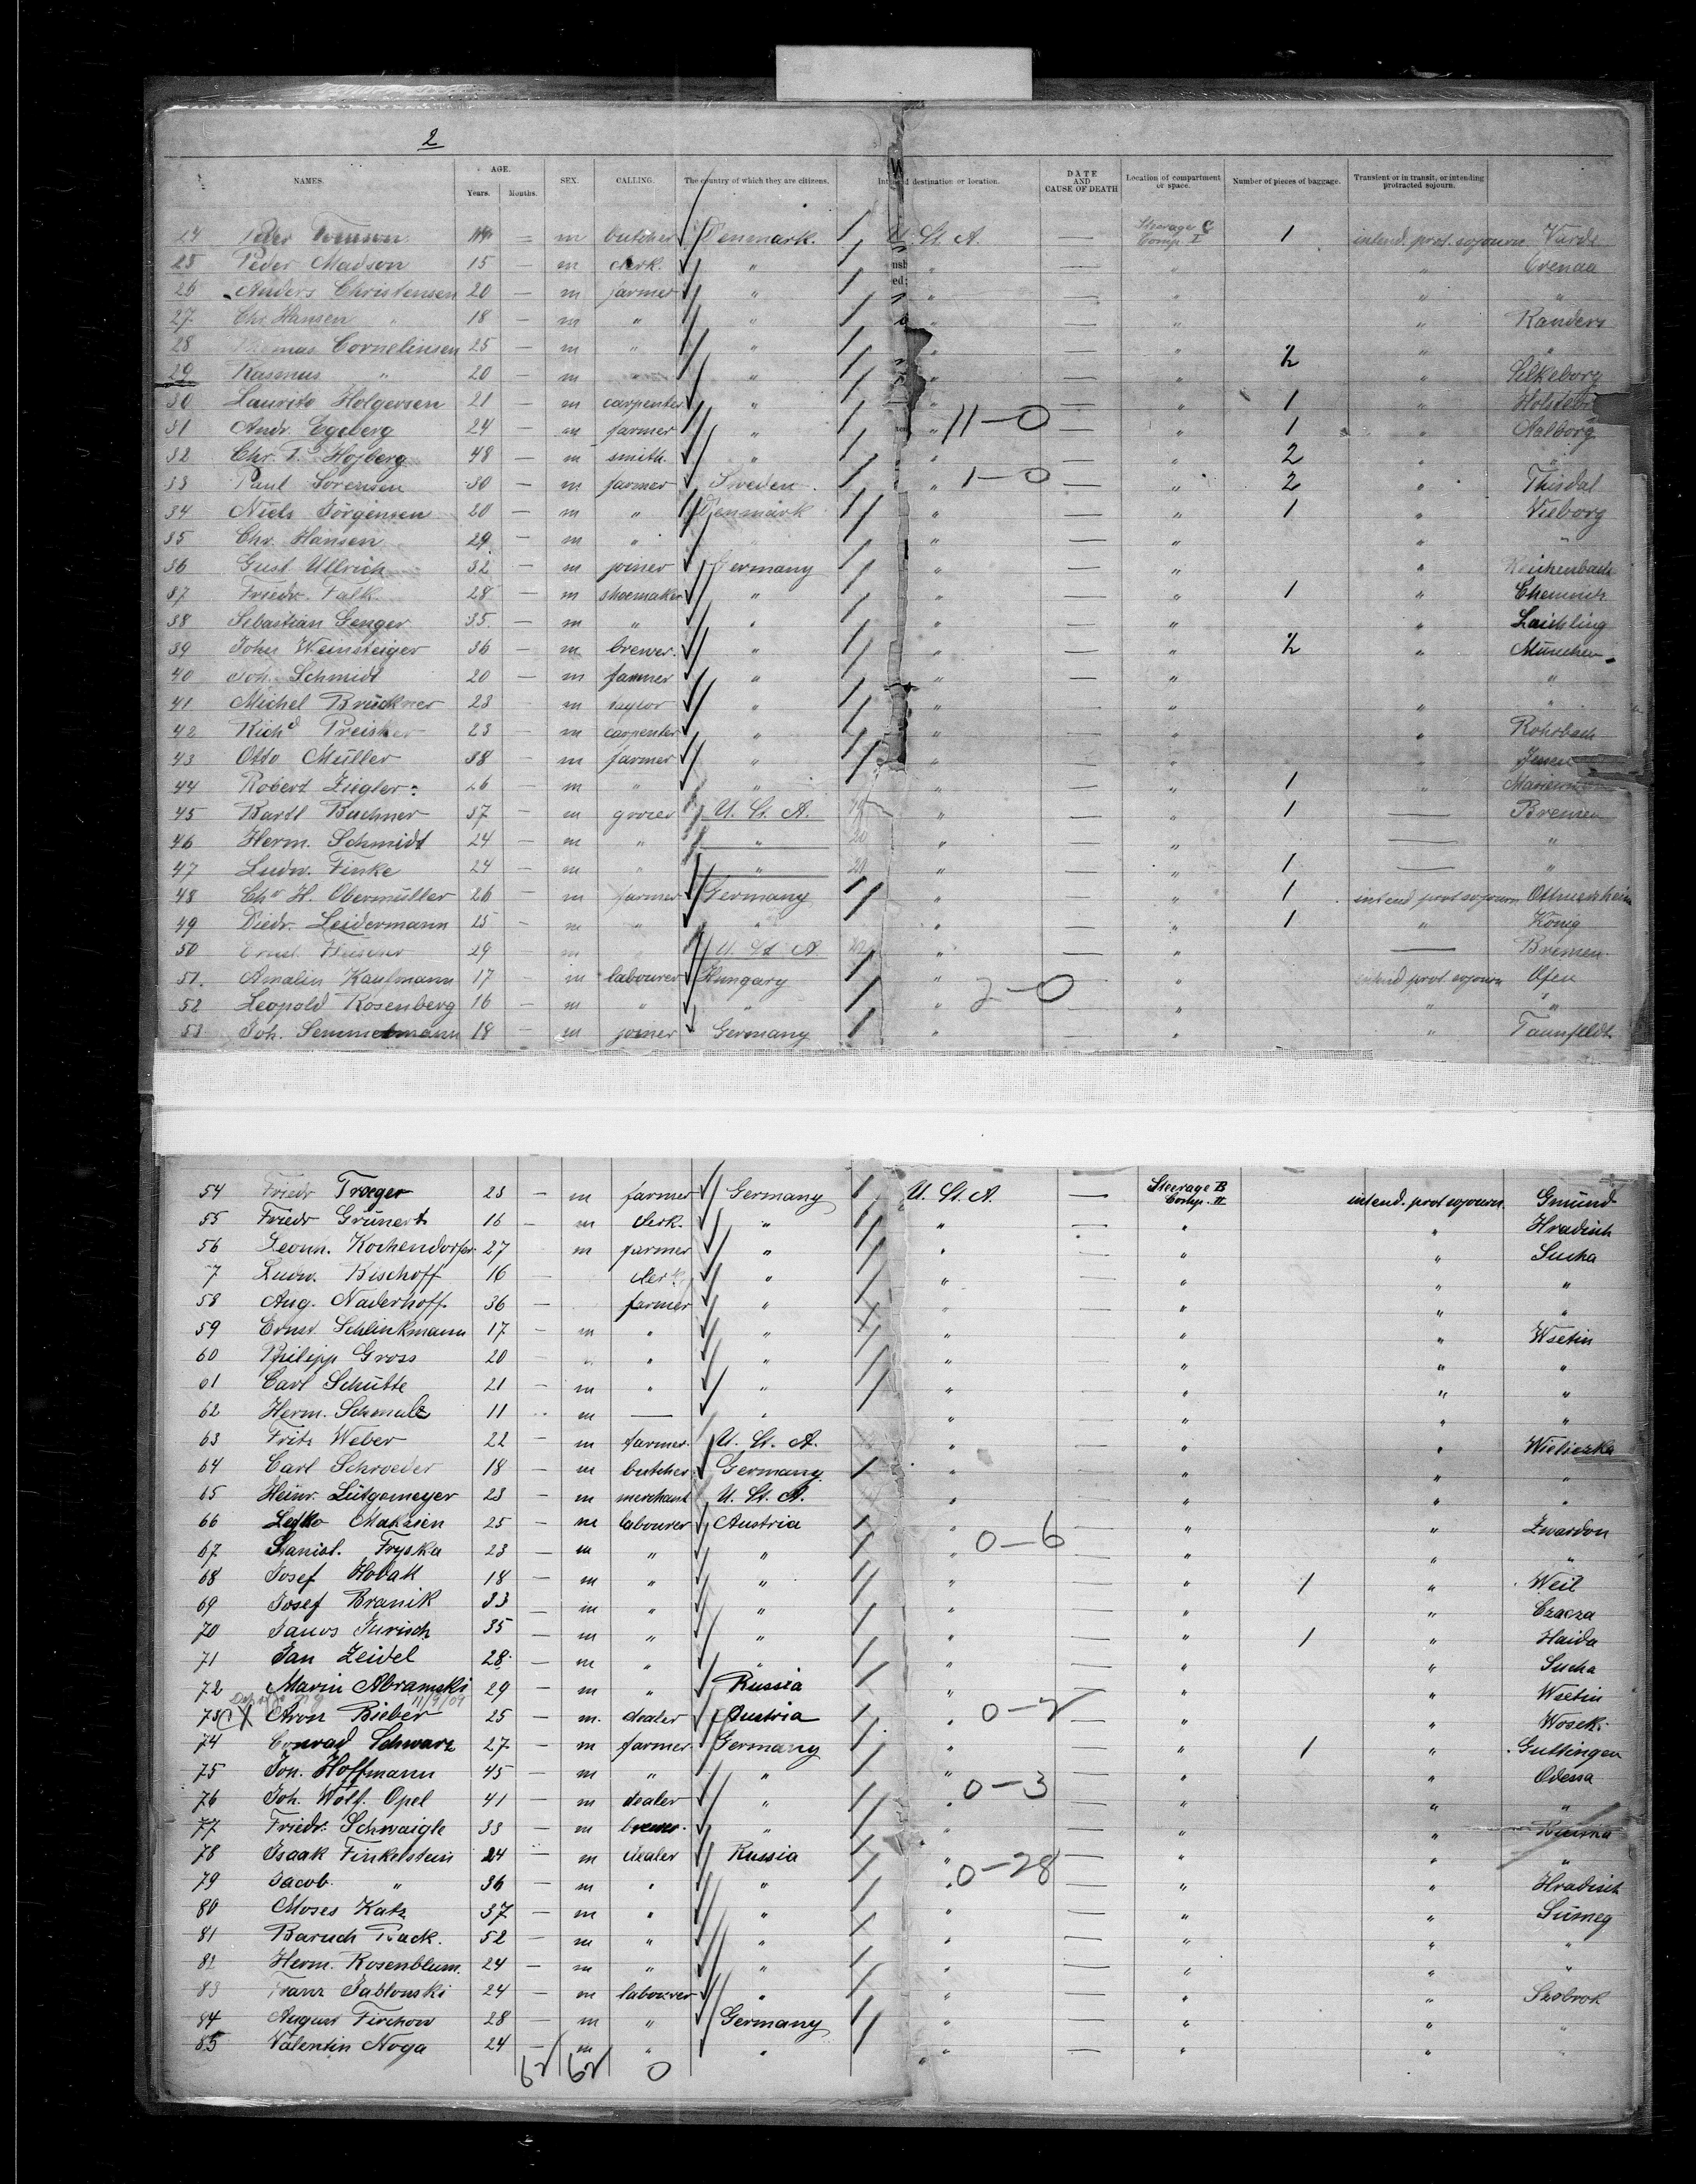 2
NAMES. AGE. Years. Months. SEX. CALLING. The country of which they are citizens. Intended destination or location. DATE AND CAUSE OF DEATH Location of compartment or space. Number of pieces of baggage. Transient or in transit, or intending protracted sojourn.
24 Peder — m butcher Denmark. U. St. A. — Steerage C Comp. I 1 intend. prot. sojourn Varde
25 Peder Madson 15 — m clerk. " " — " " Grenaa
26 Anders Christensen 20 — m farmer " " — " " "
27. Chr. Hansen 18 — m " " " — " " Randers
28 Thomas Cornelinsen 25 — m " " " — " 2 " "
29 Rasmus " 20 — m " " — " " Silkeborg
30 Laurits Holgersen 21 — m carpenter " " — " 1 " Holstebr
31 Andr. Egeberg 24 — m farmer " " 11–0 — " 1 " Aalborg
32 Chr. T. Hojberg 48 — m smith. " " — " 2 " "
33 Paul Sorensen 30 — m farmer Sweden " 1–0 — " 2 " Thisdal
34 Niels Jörgensen 20 — m " Denmark " — " 1 " Vieborg
35 Chr. Hansen 29 — m " " — " " "
36 Gust. Ullrich 32 — m joiner Germany " — " " Reichenbach
37 Friedr. Falk 28 — m shoemaker " " — " 1 " Chemnitz
38 Sebastian Genger 35 — m " " " — " " Laichling
39 John Weinsteiger 36 — m brewer. " " — " 2 " München
40 Joh. Schmidt 20 — m farmer " " — " "
41 Michel Brückner 23 — m taylor " " — " " "
42 Richd Preisker 23 — m carpenter " " — " " Rohrbach
43 Otto Müller 38 — m farmer " " — " "
44 Robert Ziegler 26 — m " " " — " 1 "
45 Bartl Buchner 37 — m grocer U. St. A. " — " 1 — Bremen
46 Herm. Schmidt 24 — m " " 20 " — " — "
47 Ludw. Finke 24 — m " " 20 " — " 1 — "
48 Chr H. Obermüller 26 — m farmer Germany " — " 1 intend prot sojourn Ottmersheim
49 Diedr. Leidermann 25 — m " " " — " 1 " König
50 29 — m U. St. A. " — " — Bremen.
51. Amalin Kaufmann 17 — m labourer Hungary " — " intend prot sojourn Ofen
52 Leopold Rosenberg 16 — m " " " 2–0 — " " "
53 Joh. Semmelmann 18 — m joiner Germany " — " " Taunfeldt
54 Friedr Troeger 23 — m farmer Germany U. St. A. — Steerage B Comp. II intend. prot sojourn. Gmünd
55 Friedr Grünert 16 — m clerk. " " — " " Hradisch
56 Leonh. Kochendorfer 27 — m farmer " " — " " Sucha
7 Ludw. Bischoff 16 — clerk " " — " " "
58 Aug. Naderhoff 36 — farmer " " — " " "
59 Ernst Schlinkmann 17 — m " " " — " " Wsetin
60 Philipp Gross 20 — " " " — " " "
61 Carl Schütte 21 — m " " " — " " "
62 Herm. Schmalz 11 m — " " — " " "
63 Fritz Weber 22 — m farmer. U. St. A. " — " " Wieliczka
64 Carl Schroeder 18 — m butcher Germany " — " " "
65 Heinr. Lütgemeyer 23 — m merchant U. St. A. " — " " "
66 Lesko Maksien 25 — m labourer Austria " 0–6 — " " Zwardon
67 Stanisl. Fryska 23 — m " " " — " " "
68 Josef Hobak 18 — m " " " — " 1 " Weil
69 Josef Branik 33 — m " " " — " " Czacza
70 Janos Jurisch 35 — m " " " — " 1 " Haida
71 Jan Zeidel 28 — m " " " — " " Sucha
72 Marin Abramski 29 — m " Russia " — " " Wsetin
11/9/09
73 X Aron Bieber 25 — m. dealer Austria " 0–2 — " " Woseki
74 Conrad Schwarz 27 — m farmer Germany " — " 1 " Guttingen
75 Joh. Hoffmann 45 — m " " " 0–3 — " " Odessa
76 Joh. Wolf. Opel 41 — m dealer " " — " " "
77 Friedr. Schwaigle 33 — m brewer. " " — " "
78 Isaak Finkelstein 24 — m dealer Russia " 0–28 — " " "
79 Jacob. " 36 — m " " " — " " Hradisch
80 Moses Katz 37 — m " " " — " " Sümeg
81 Baruch Back. 52 — m " " " — " " "
82 Herm. Rosenblum. 24 — m " " " — " " "
83 Franz Jablonski 24 — m labourer " " — " "
84 August Firchow 28 — m " Germany " — " " "
85 Valentin Noga 24 — m " " " — " " "
62 62 0